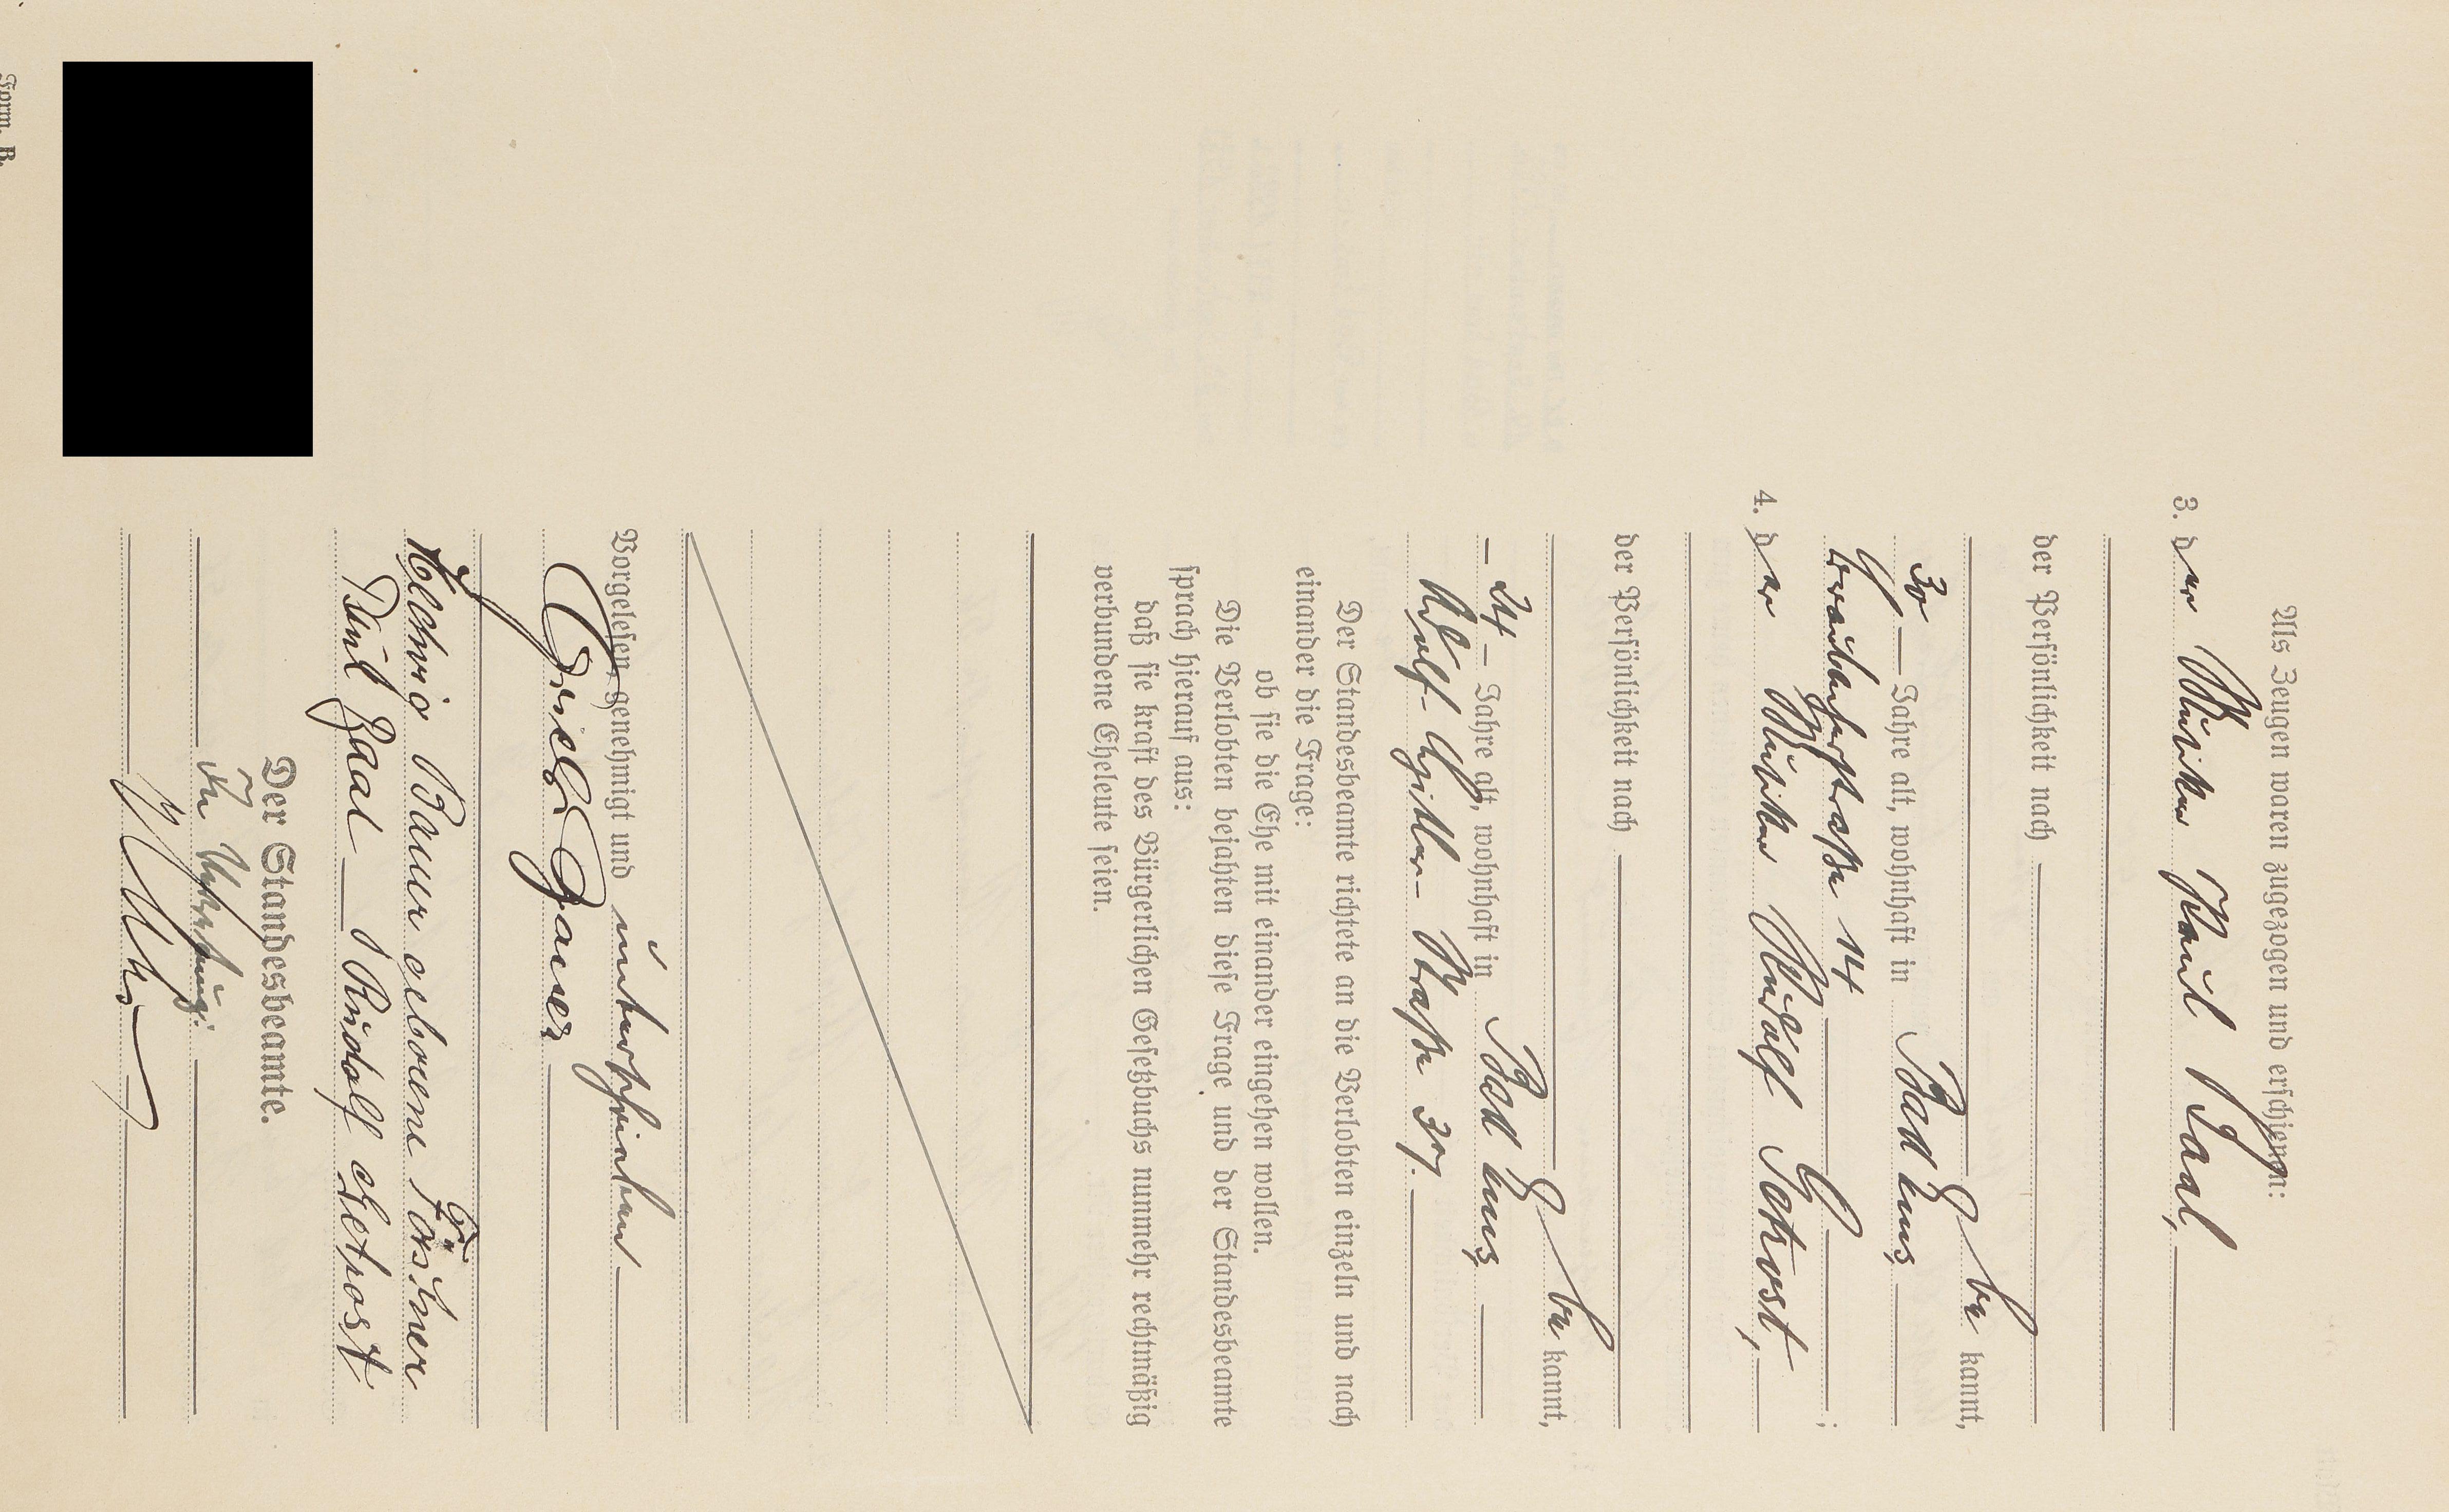 Als Zeugen waren zugezogen und erschienen:
3. der Musiker Paul Baal,
der Persönlichkeit nach
be kannt,
30 Jahre alt, wohnhaft in Bad Ems
Graubachstraße 14 ;
4. der Musiker Rudolf Getrost,
der Persönlichkeit nach
be kannt,
– 24 – Jahre alt, wohnhaft in Bad Ems,
Adolf-Hitler-Straße 37.
Der Standesbeamte richtete an die Verlobten einzeln und nach
einander die Frage:
ob sie die Ehe mit einander eingehen wollen.
Die Verlobten bejahten diese Frage und der Standesbeamte
sprach hierauf aus:
daß sie kraft des Bürgerlichen Gesetzbuchs nunmehr rechtmäßig
verbundene Eheleute seien.
Vorgelesen, genehmigt und unterschrieben
Bauer
Hedwig Bauer geborene
Paul Baal Rudolf Getrost
Der Standesbeamte.
In Vertretung:
Form. B.